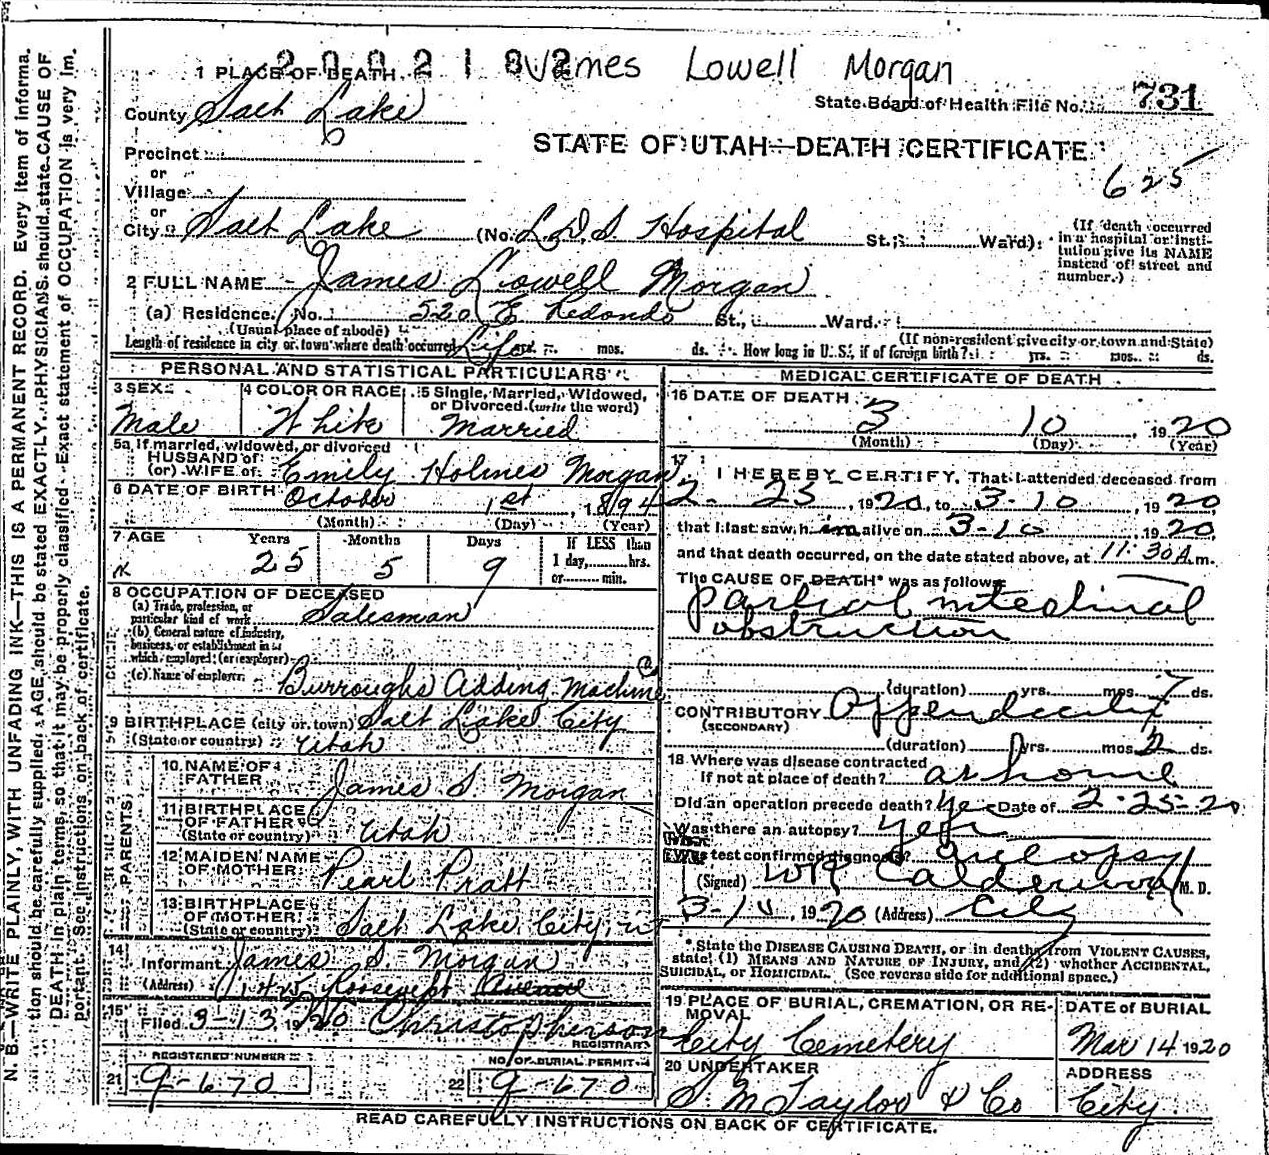 2002182 James Lowell Morgan
1 PLACE OF DEATH
State Board of Health File No. 731
County Salt Lake
STATE OF UTAH—DEATH CERTIFICATE
625
Precinct
or
Village
or
City Salt Lake (No. L.D.S Hospital St.; Ward)
(If death occurred in a hospital or institution give its NAME instead of street and number.)
2 FULL NAME James Lowell Morgan
(a) Residence. No. 520 E Redondo St., Ward.
(Usual place of abode) (If non-resident give city or town and State)
Length of residence in city or town where death occurred Life yrs. mos. ds. How long in U. S., if of foreign birth? yrs. mos. ds.
PERSONAL AND STATISTICAL PARTICULARS
3 SEX Male
4 COLOR OR RACE White
5 Single, Married, Widowed, or Divorced (write the word) Married
5a If married, widowed, or divorced
HUSBAND of
(or) WIFE of Emily Holmes Morgan
6 DATE OF BIRTH October 1st, 1894
(Month) (Day) (Year)
7 AGE Years 25 Months 5 Days 9
If LESS than 1 day, hrs. or min.
8 OCCUPATION OF DECEASED
(a) Trade, profession, or particular kind of work Salesman
(b) General nature of industry, business, or establishment in which employed (or employer)
(c) Name of employer Burroughs Adding Machine Co
9 BIRTHPLACE (city or town) Salt Lake City
(State or country) Utah
PARENTS
10 NAME OF FATHER James S. Morgan
11 BIRTHPLACE OF FATHER (State or country) Utah
12 MAIDEN NAME OF MOTHER Pearl Pratt
13 BIRTHPLACE OF MOTHER (State or country) Salt Lake City, Ut
14 Informant James S. Morgan
(Address) Roosevelt Avenue
15 Filed 3-13 1920 Christopherson
REGISTRAR
REGISTERED NUMBER
21 9-670
NO. OF BURIAL PERMIT
22 9-670
MEDICAL CERTIFICATE OF DEATH
16 DATE OF DEATH
3 10, 1920
(Month) (Day) (Year)
17 I HEREBY CERTIFY, That I attended deceased from
2-23, 1920, to 3-10, 1920
that I last saw him alive on 3-10 1920
and that death occurred, on the date stated above, at 11:30 A.m.
The CAUSE OF DEATH* was as follows:
Partial intestinal
obstruction
(duration) yrs. mos. 7 ds.
CONTRIBUTORY Appendicitis
(SECONDARY)
(duration) yrs. mos. 2 ds.
18 Where was disease contracted
if not at place of death? at home
Did an operation precede death? Yes Date of 2-25-20
Was there an autopsy? yes
What test confirmed diagnosis? autopsy
(Signed) Calderwood M. D.
, 1920 (Address) City
* State the DISEASE CAUSING DEATH, or in deaths from VIOLENT CAUSES, state (1) MEANS AND NATURE OF INJURY, and (2) whether ACCIDENTAL, SUICIDAL, or HOMICIDAL. (See reverse side for additional space.)
19 PLACE OF BURIAL, CREMATION, OR REMOVAL
City Cemetery
DATE OF BURIAL
Mar 14 1920
20 UNDERTAKER
S. M Taylor & Co
ADDRESS
City
READ CAREFULLY INSTRUCTIONS ON BACK OF CERTIFICATE.
N. B.—WRITE PLAINLY, WITH UNFADING INK—THIS IS A PERMANENT RECORD. Every item of information should be carefully supplied. AGE should be stated EXACTLY. PHYSICIANS should state CAUSE OF DEATH in plain terms, so that it may be properly classified. Exact statement of OCCUPATION is very important. See instructions on back of certificate.